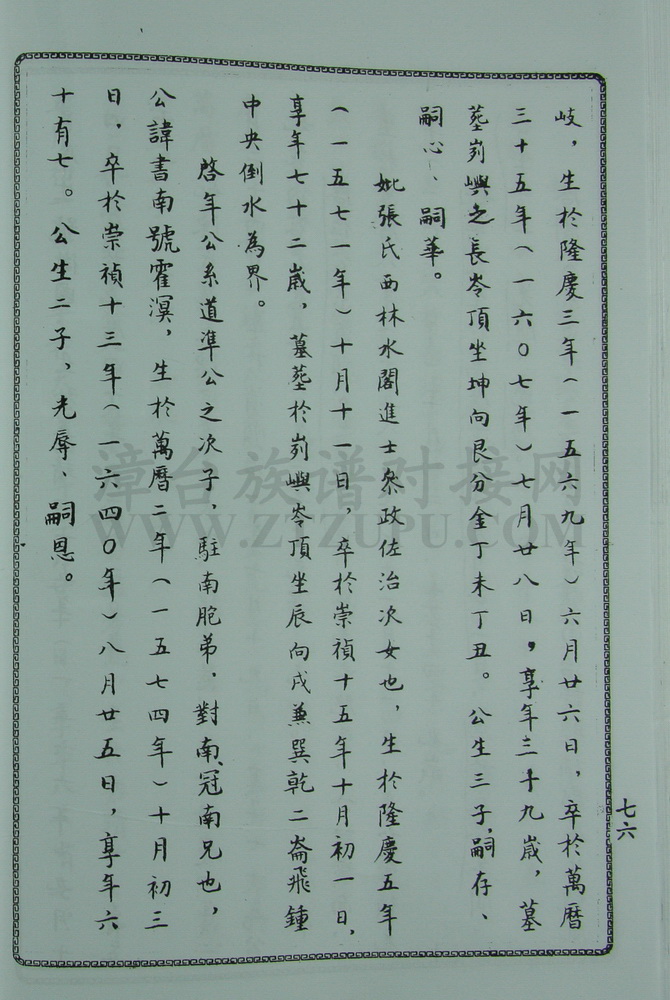 岐，生於隆慶三年(一五六九年)六月廿六日，卒於萬曆
三十五年(一六〇七年)七月廿八日，享年三十九歲，墓
塟峛嶼之長岺頂坐坤向艮分金丁未丁丑。公生三子，嗣存、
嗣心、嗣華。
妣張氏西林水閣進士叅政佐治次女也，生於隆慶五年
(一五七一年)十月十一日，卒於崇禎十五年十月初一日，
享年七十二歲，墓塟於峛嶼岺頂坐辰向戌兼巽乾二崙飛鍾
中央倒水為界。
啓年公系道準公之次子，駐南胞弟，對南、冠南兄也，
公諱書南號霍溟，生於萬曆二年(一五七四年)十月初三
日，卒於崇禎十三年(一六四〇年)八月廿五日，享年六
十有七。公生二子，光辱、嗣恩。
七六
漳台族谱对接网
WWW.ZTZUPU.COM